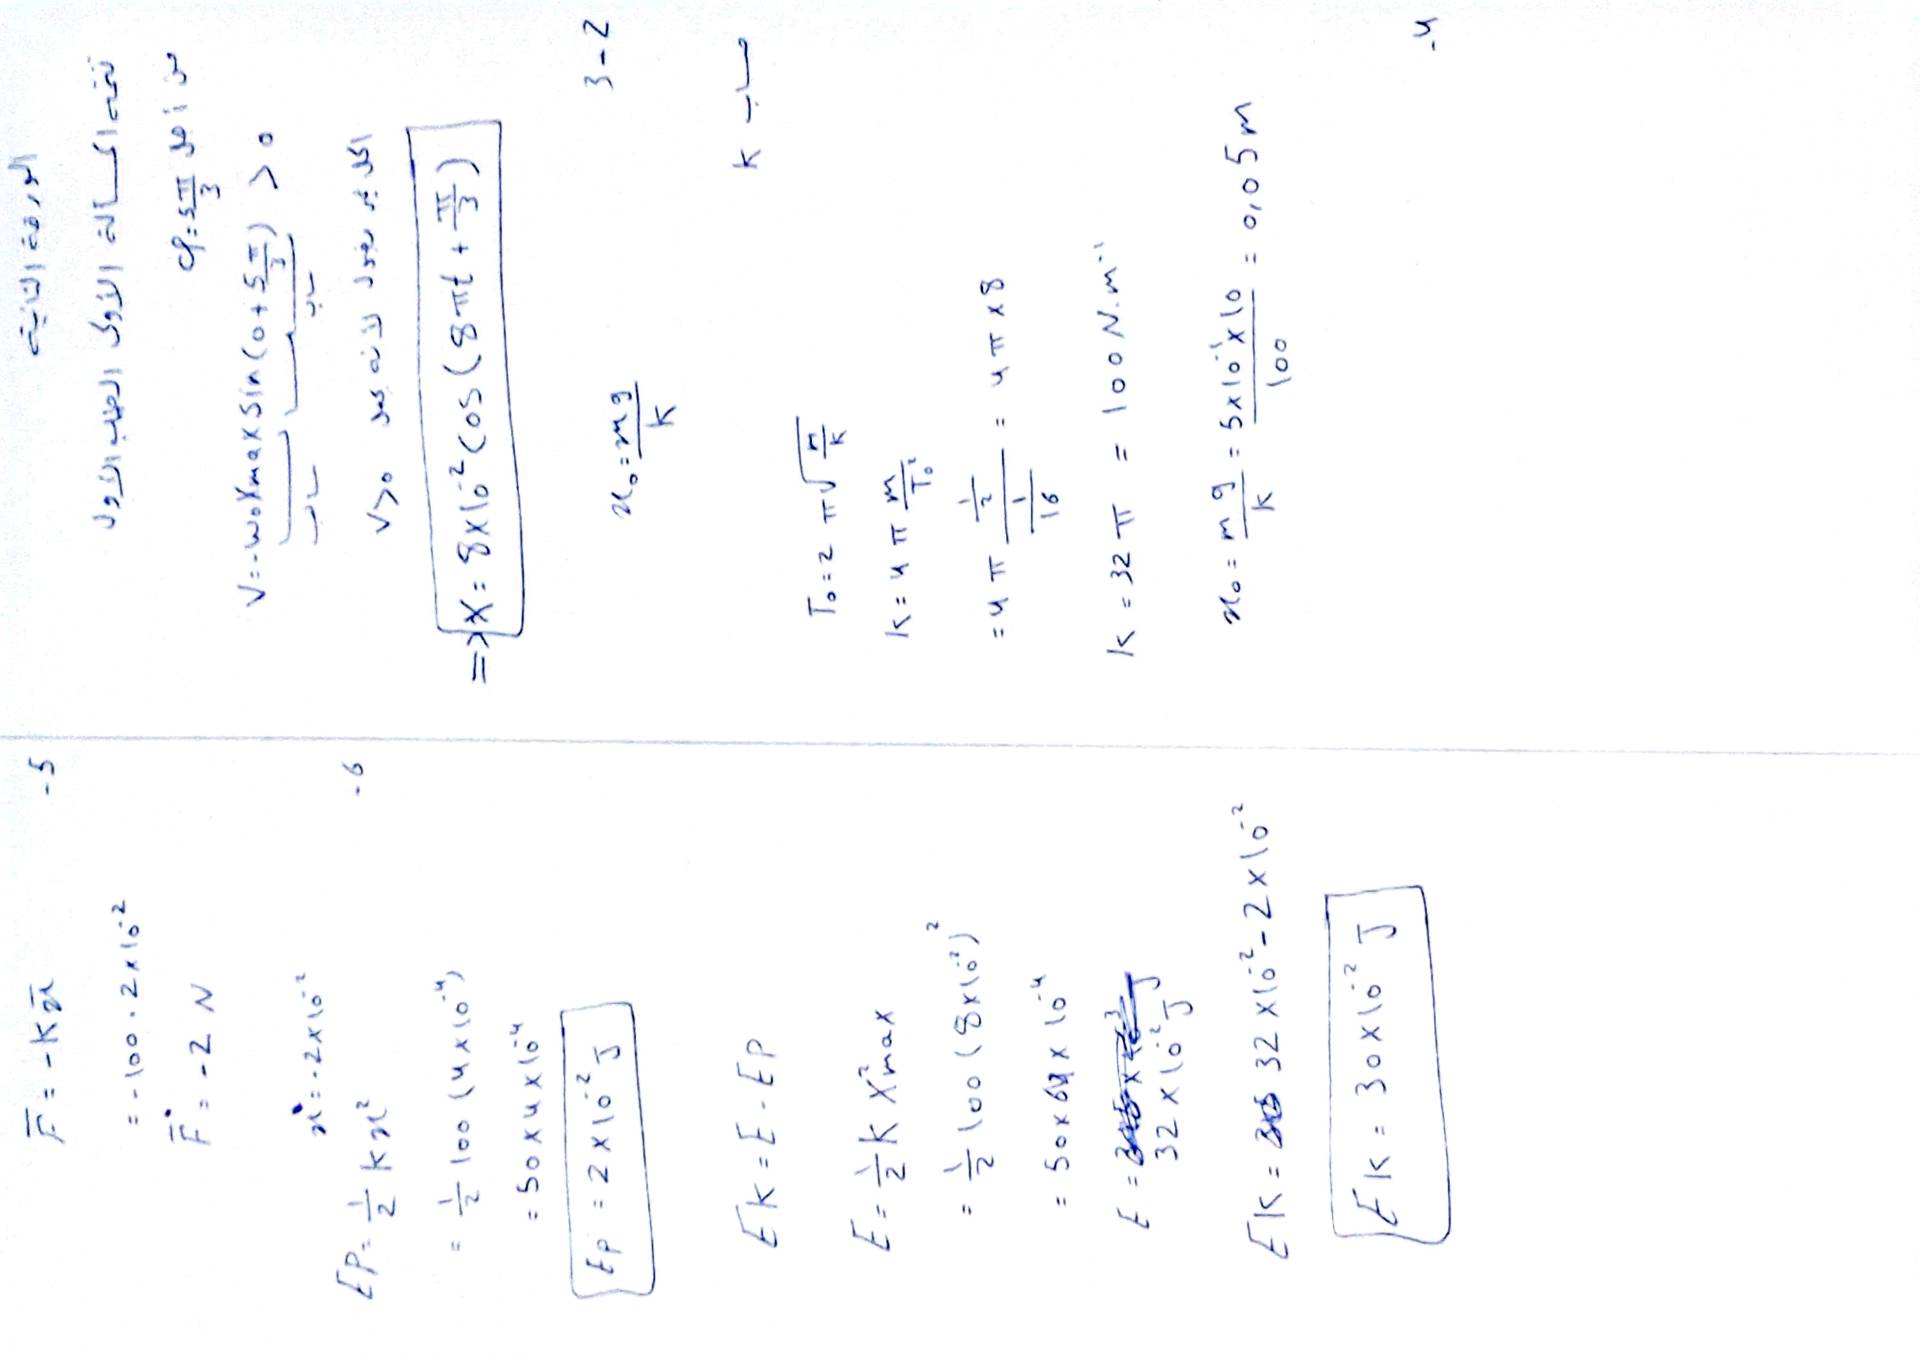 الورقة الثانية
تتمة المسألة الأولى الطلب الأول
من أجل φ = 5π/3
V = -ω₀ Xmax sin(0 + 5π/3) > 0
سالب سالب
V > 0
=> X = 8×10⁻² cos(8πt + π/3)
3-2
x₀ = mg/k
حساب k
T₀ = 2π√(m/k)
k = 4π m/T₀²
= 4π (1/2)/(1/16) = 4π × 8
k = 32π = 100 N.m⁻¹
x₀ = m g/k = 5×10⁻¹×10/100 = 0,05 m
-4
-5
F̄ = -k x̄
= -100 . 2×10⁻²
F̄ = -2 N
-6
x = -2×10⁻²
Ep = 1/2 k x²
= 1/2 100 (4×10⁻⁴)
= 50 × 4 × 10⁻⁴
Ep = 2×10⁻² J
Ek = E - Ep
E = 1/2 k X²max
= 1/2 100 (8×10⁻²)²
= 50×64×10⁻⁴
E = 32×10⁻² J
Ek = 32×10⁻² - 2×10⁻²
Ek = 30×10⁻² J